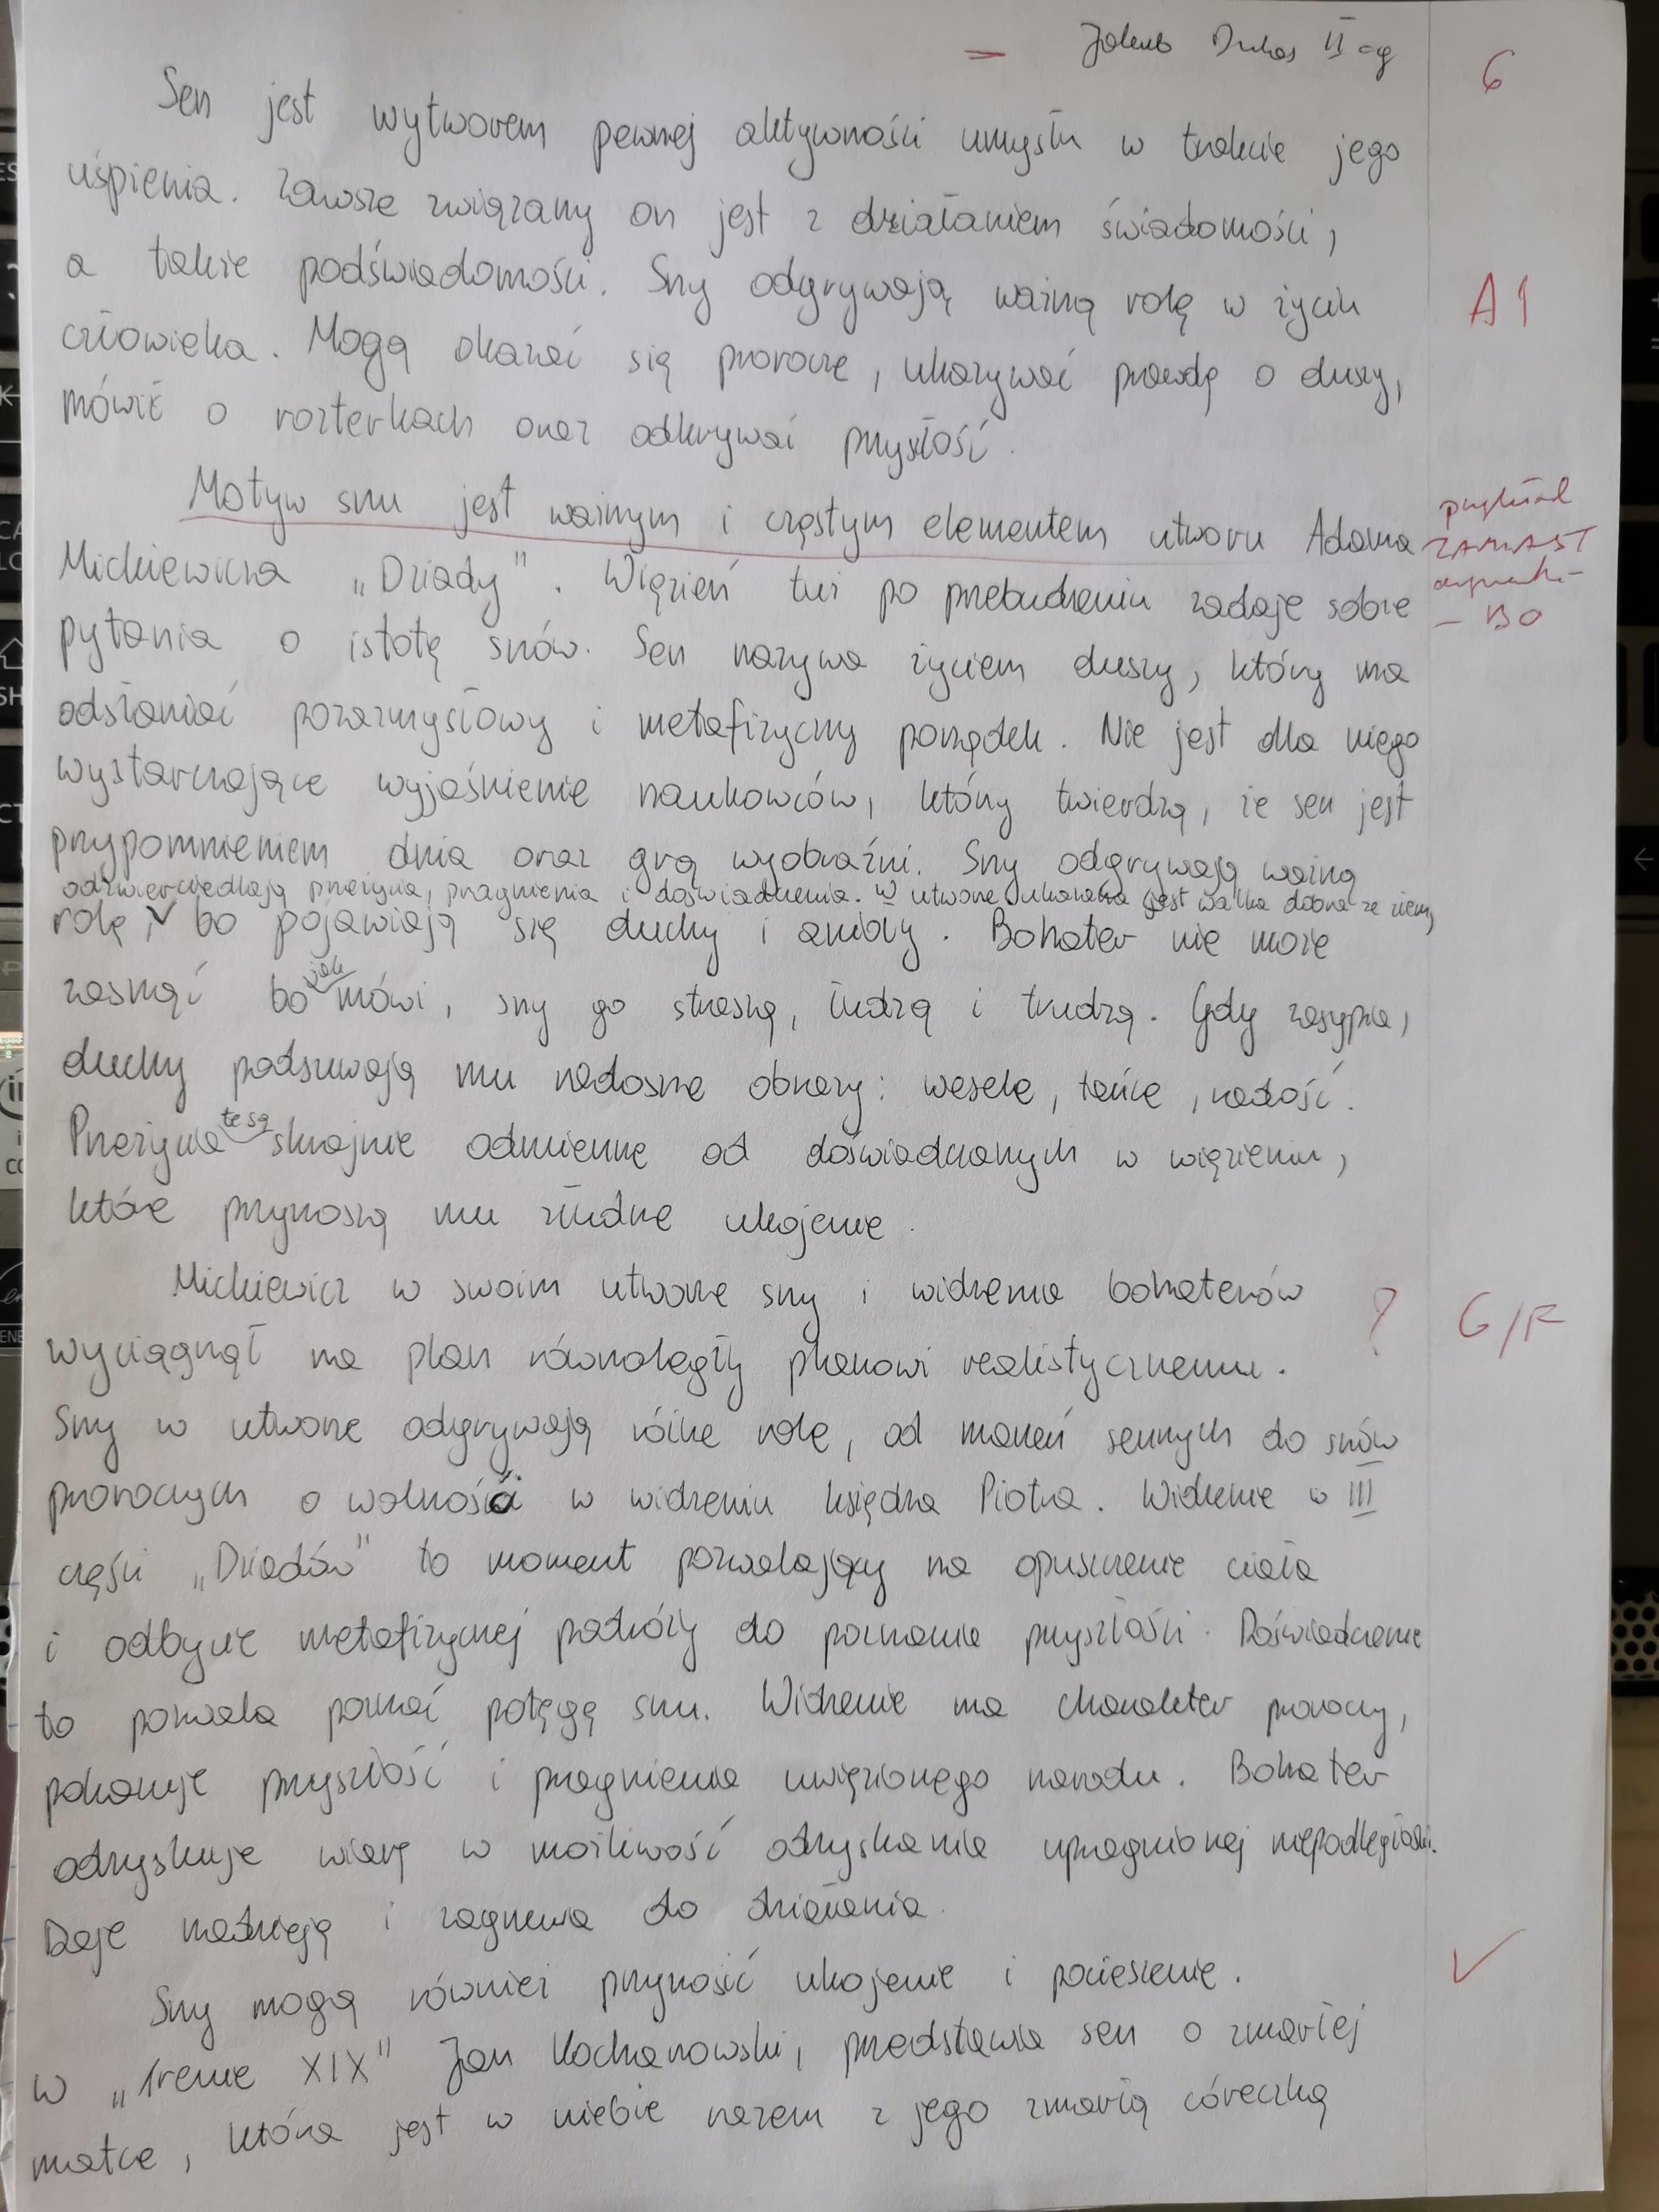 Jakub Dukas II cg
6
Sen jest wytworem pewnej aktywności umysłu w trakcie jego
uśpienia. Zawsze związany on jest z działaniem świadomości,
a także podświadomości. Sny odgrywają ważną rolę w życiu
A1
człowieka. Mogą okazać się prorocze, ukazywać prawdę o duszy,
mówić o rozterkach oraz odkrywać przyszłość.
Motyw snu jest ważnym i częstym elementem utworu Adama
przykład
ZAMIAST
argumentu
- BO
Mickiewicza „Dziady". Więzień tuż po przebudzeniu zadaje sobie
pytania o istotę snów. Sen nazywa życiem duszy, który ma
odsłaniać pozazmysłowy i metafizyczny porządek. Nie jest dla niego
wystarczające wyjaśnienie naukowców, którzy twierdzą, że sen jest
przypomnieniem dnia oraz grą wyobraźni. Sny odgrywają ważną
odzwierciedlają przeżycia, pragnienia i doświadczenia. W utworze ukazana jest walka dobra ze złem,
rolę, bo pojawiają się duchy i anioły. Bohater nie może
zasnąć bo jak mówi, sny go straszą, łudzą i trudzą. Gdy zasypia,
duchy podsuwają mu radosne obrazy: wesele, tańce, radość.
Przeżycia te są skrajnie odmienne od doświadczanych w więzieniu,
które przynoszą mu złudne ukojenie.
Mickiewicz w swoim utworze sny i widzenia bohaterów
? G/F
wyciągnął na plan równoległy planowi realistycznemu.
Sny w utworze odgrywają różne role, od marzeń sennych do snów
proroczych o wolności w widzeniu księdza Piotra. Widzenie w III
części „Dziadów" to moment pozwalający na opuszczenie ciała
i odbycie metafizycznej podróży do poznania przyszłości. Doświadczenie
to pozwala poznać potęgę snu. Widzenie ma charakter proroczy,
pokazuje przyszłość i pragnienia uwięzionego narodu. Bohater
odzyskuje wiarę w możliwość odzyskania upragnionej niepodległości.
Daje nadzieję i zagrzewa do działania.
Sny mogą również przynosić ukojenie i pocieszenie.
w „Trenie XIX" Jan Kochanowski, przedstawia sen o zmarłej
matce, która jest w niebie razem z jego zmarłą córeczką